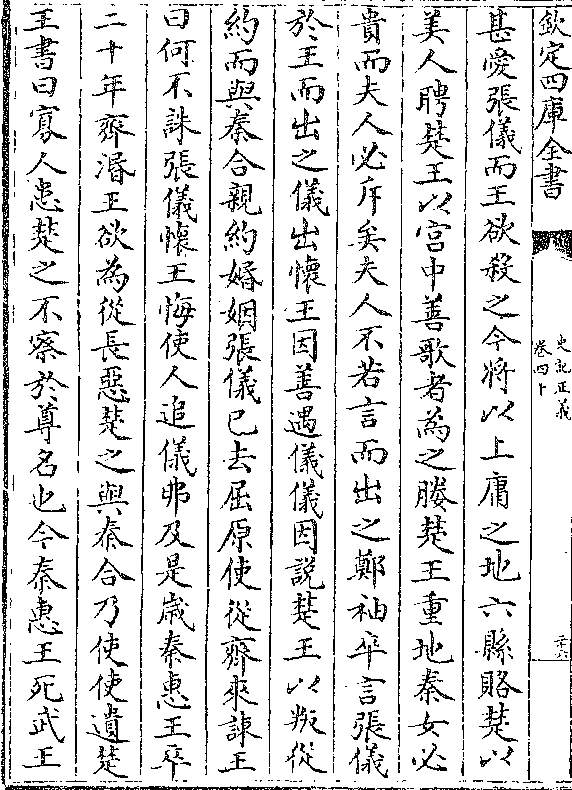 欽定四庫全書
史記正義
卷四十
二十六
甚愛張儀而王欲殺之今將以上庸之地六縣賂楚以
美人聘楚王以宫中善歌者為之媵楚王重地秦女必
貴而夫人必斥矣夫人不若言而出之鄭袖卒言張儀
於王而出之儀出懷王因善遇儀儀因說楚王以叛從
約而與秦合親約婚姻張儀已去屈原使從齊來諫王
曰何不誅張儀懷王悔使人追儀弗及是歲秦惠王卒
二十年齊湣王欲為從長惡楚之與秦合乃使使遺楚
王書曰寡人患楚之不察於尊名也今秦惠王死武王